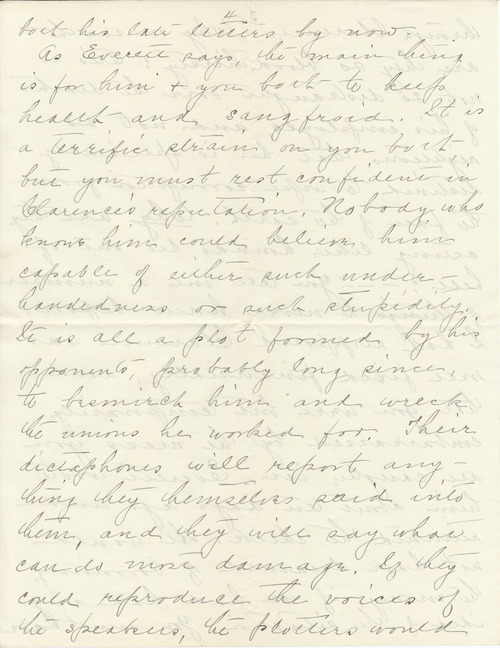 4
both his late letters by now.
As Everett says the main thing
is for him + you both to keep
health and sangfroid. It is
a terrific strain on you both
but you must rest confident in
Clarence's reputation. Nobody who
knows him could believe him
capable of either such under-
handedness or such stupidity.
It is all a plot formed by his
opponents, probably long since,
to besmirch him and wreck
the unions he worked for. Their
dictaphones will report any-
thing they themselves said into
them, and they will say what
can do most damage. If they
could reproduce the voices of
the speakers, the plotters would